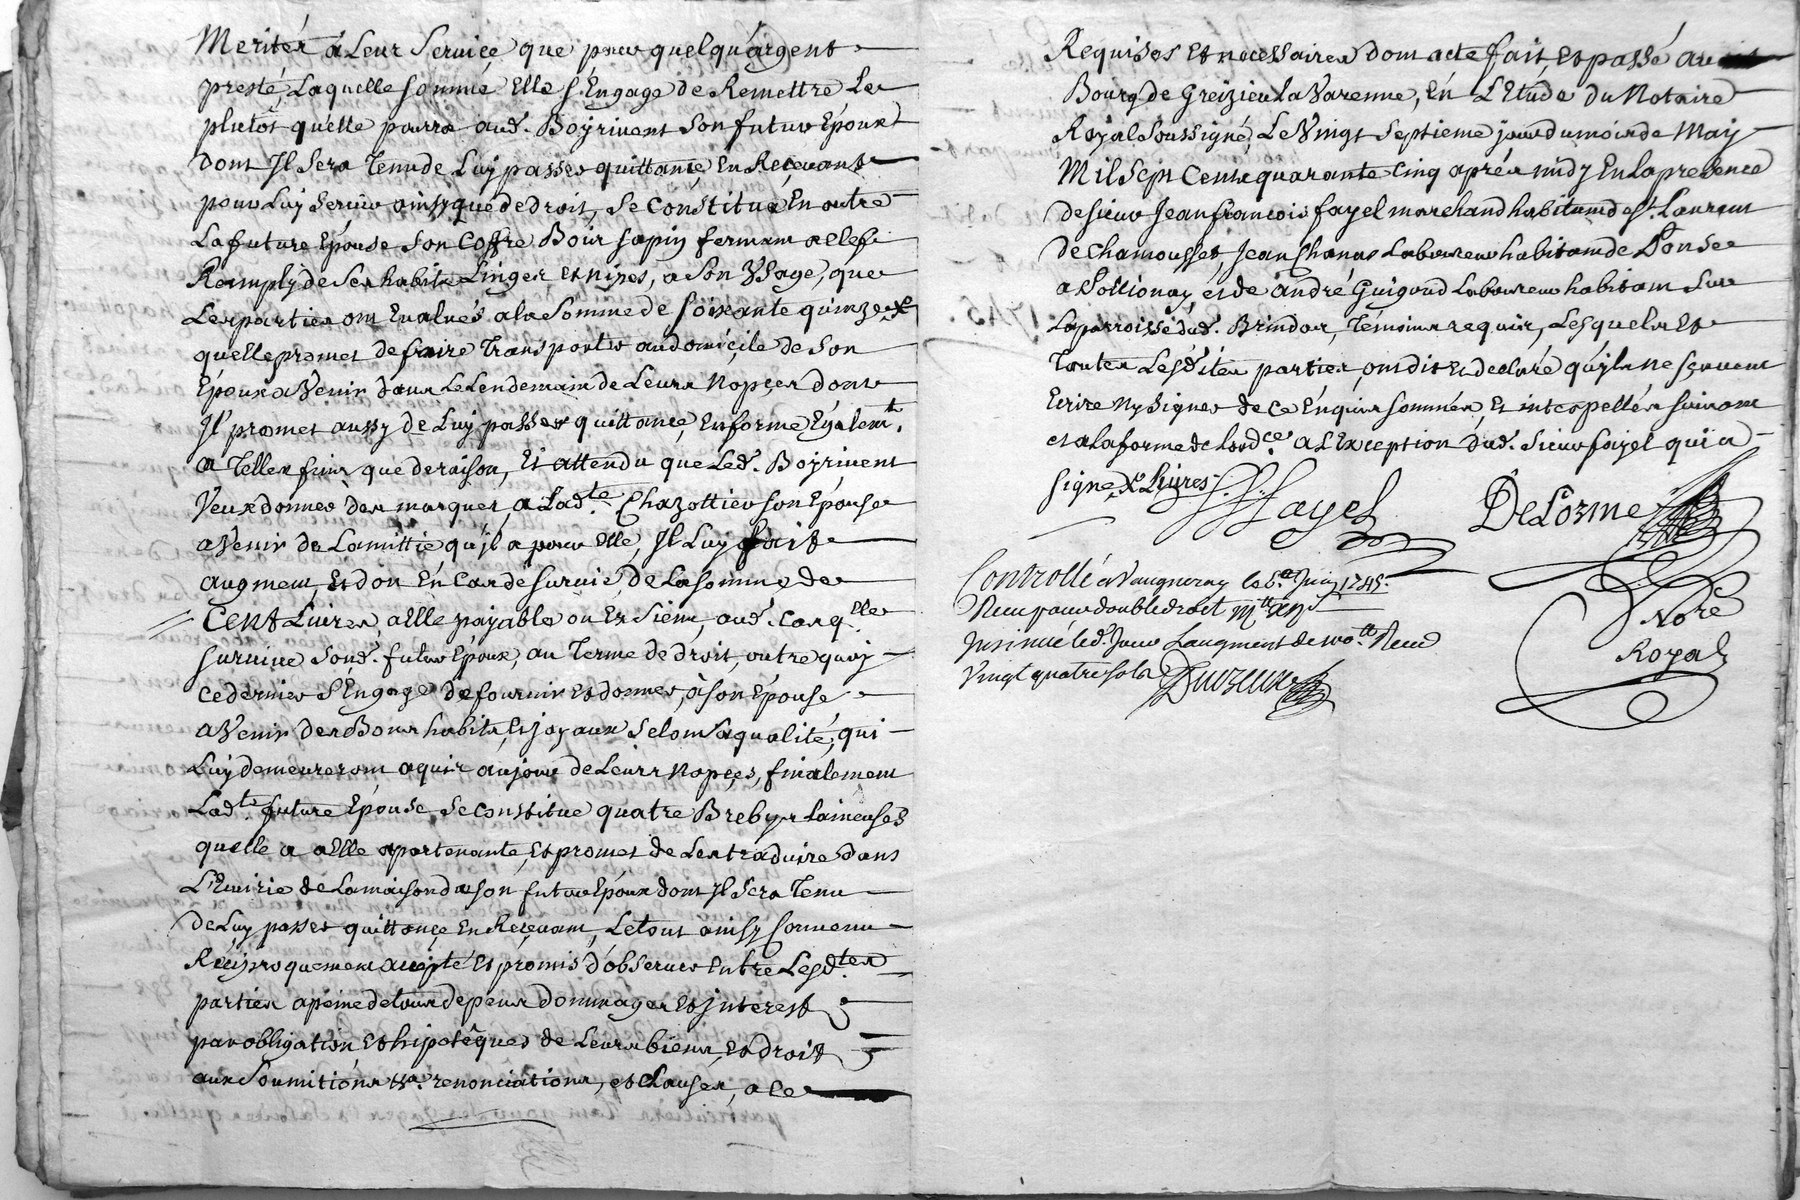 Merités a Leur Service, que pour quelqu'argent
presté, Laquelle somme Elle s'Engage de Remettre Le
plutôt qu'elle pourra aud. Boyrivent son futur Epoux
dont Il Sera Tenu de Luy passer quittance En Recevant
pour Luy Servir ainsy que de droit, Se Constitue En outre
La future Epouse Son Coffre Bois sapin fermant a Clef
Remply de Ses habits Linges et nipes, a Son Usage, que
Les parties ont Evalués a la Somme de soixante quinze
quelle promet de faire Transporter au domicile de Son
Epoux a Venir dans Le Lendemain de Leurs Nopçes dont
Il promet aussy de Luy passer quittance, En forme Egalemt.
a Telles fins que de raison, Et attendu que Led. Boyrivent
Veux donner des marques a Ladte. Chazottier son Epouse
a Venir de Lamittié qu'il a pour Elle, Il Luy fait
augment, Et don En Cas de survie, de La somme de
Cent Livres, a Elle payable ou Es Siens, aud. Cas q.lle
survive Sond. futur Epoux, au Terme de droit, outre quoy
ce dernier S'Engage de fournir Et donner, à son Epouse
a Venir des Bons habits, Et joyaux Selon Sa qualité, qui
Luy demeureront aquis au jour de Leurs Nopçes, finalement
Ladte. future Epouse se Constitue quatre Brebys Laineuses
quelle a a Elle apartenante, Et promet de Les traduire Dans
L'Ecuirie de La maison de son futur Epoux dont Il Sera Tenu
de Luy passer quittançe En Reçevant, Le tout ainsy Convenu
Réciproquement accepté Et promis d'observer Entre Lesdtes
parties a peine de tous depens dommages Et Interest
par obligation, Et hipotêques de Leurs biens, Et droit
aux Soumitions renonciations, et Clauses, a ce
Requises Et necessaires dont acte fait Et passé au
Bourg de Greizieu La Varenne, En L'Etude du Notaire
Royal Soussigné, Le Vingt Septieme jour du mois de May
Mil Sept Cent quarante Cinq aprés midy En La presence
de sieur Jean francois fayel marchand habitant de St. Laurent
de Chamousset, Jean Chanas Laboureur habitant de
a Pollionay, et de André Guigoud Laboureur habitant Sur
La parroisse dud. Brindas, Témoins requis, Lesquels Et
Toutes Lesdites parties, ont dit Et declaré qu'ils ne sçavent
Ecrire Ny Signer de ce Enquis sommés, Et interpellés suivant
et a La forme de L'ordce. a L'Exception dud. Sieur fayel qui a
signé, Livres.
Fayel
DeLorme
Nore
Royal
Controllé a Vaugneray le 6e Juin 1745.
Receu pour double droit
Insinué led. Jour Laugment de 100tt Receu
Vingt quatre sols